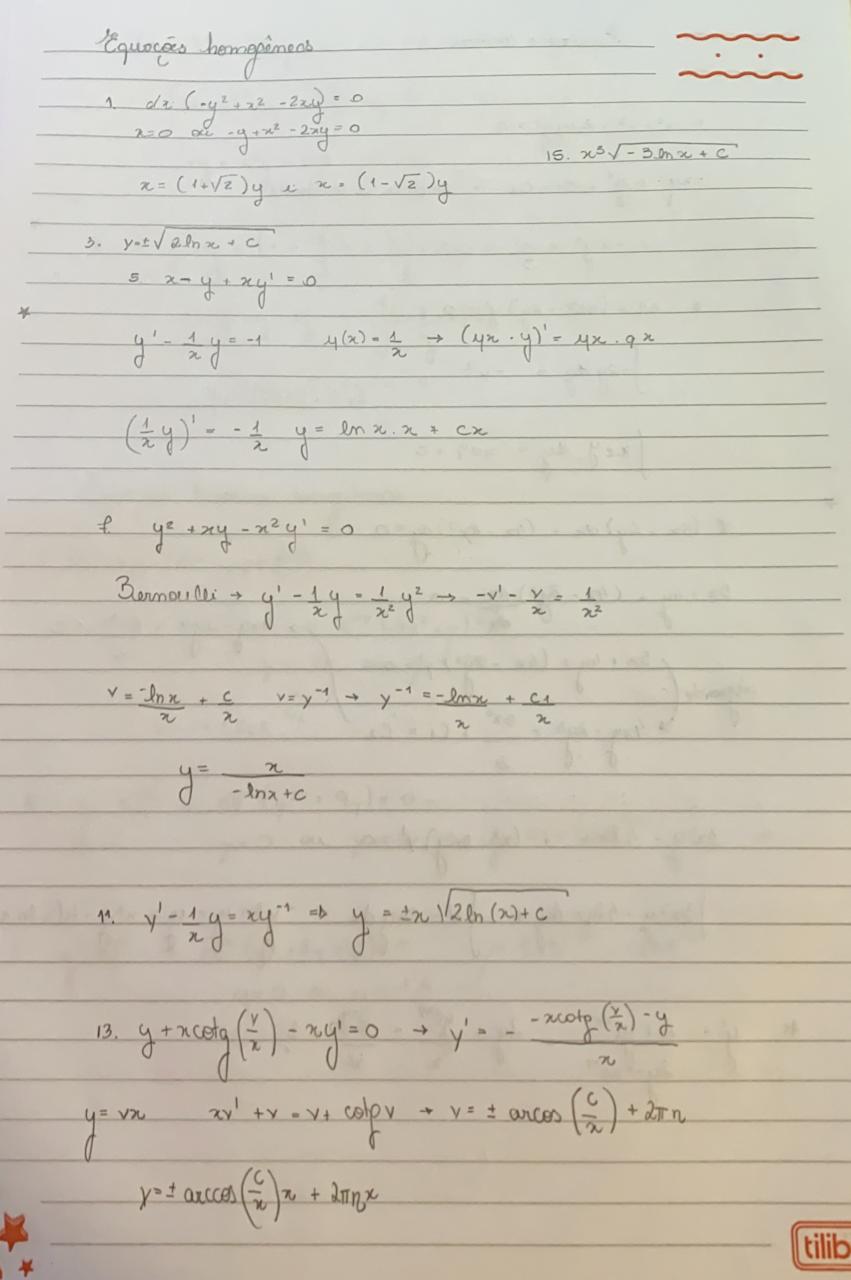 Equações homogêneas
1. dx (-y² + x² - 2xy) = 0
x=0 ou -y + x² - 2xy = 0
15. x³√(-3 ln x + c)
x = (1+√2)y e x = (1-√2)y
3. y=±√(2 ln x + c)
5. x - y + xy' = 0
y' - 1/x y = -1 μ(x) = 1/x → (μx · y)' = μx · qx
(1/x y)' = - 1/x y = ln x . x + cx
y² + xy - x²y' = 0
Bernoulli → y' - 1/x y = 1/x² y² → -v' - v/x = 1/x²
v = -ln x/x + c/x v = y⁻¹ → y⁻¹ = -ln x/x + c1/x
y = x/(-ln x + c)
11. y' - 1/x y = xy⁻¹ ⇒ y = ±x √(2 ln (x) + c)
13. y + x cotg (y/x) - xy' = 0 → y' = - (-x cotg (y/x) - y)/x
y = vx xv' + v = v + cotg v → v = ± arcos (c/x) + 2πn
y = ± arccos (c/x) x + 2πnx
tilib